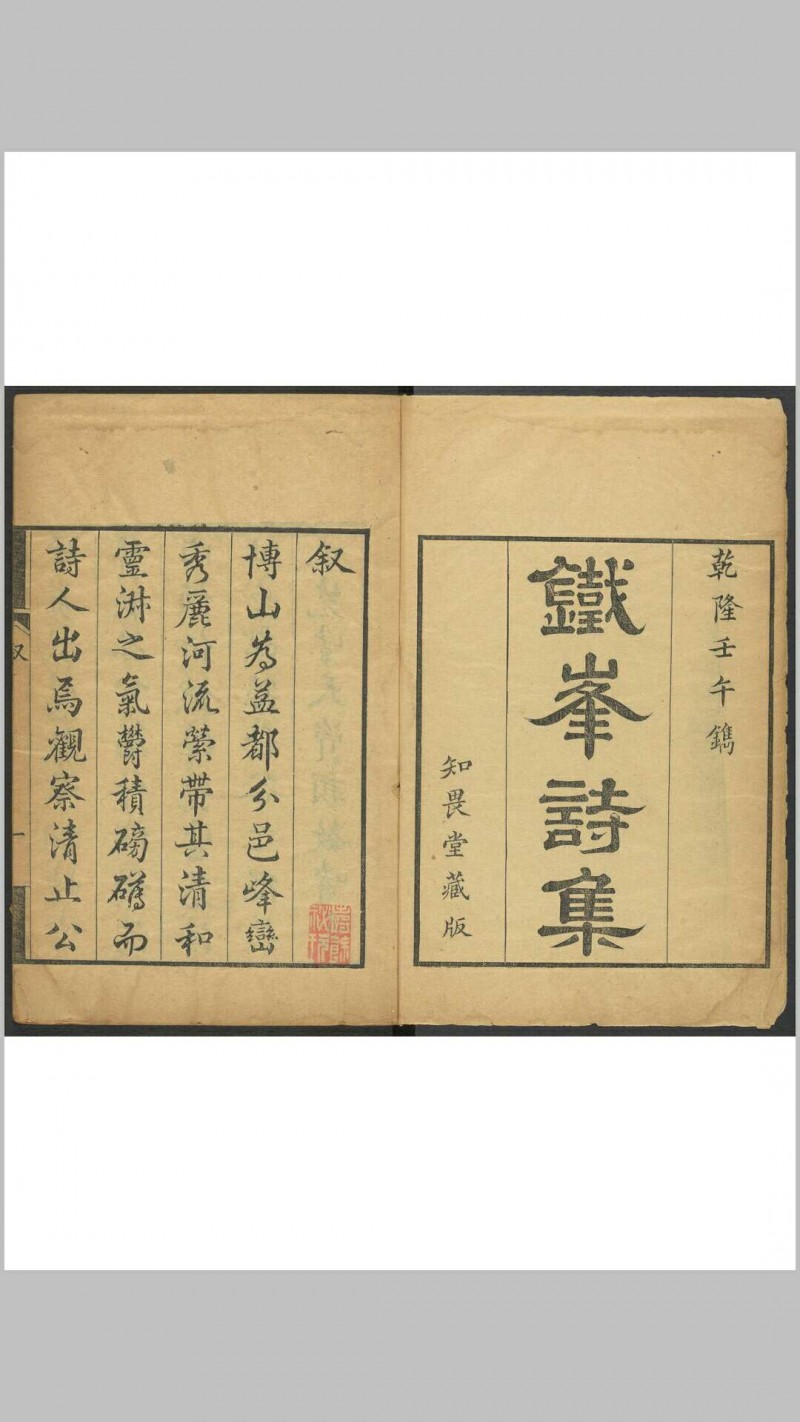 乾隆壬午鐫
鐵峯詩集
知畏堂藏版
叙
博山為益都分邑峰巒
秀麗河流縈帶其清和
靈淑之氣鬱積磅礴而
詩人出焉觀察清止公
叙
一